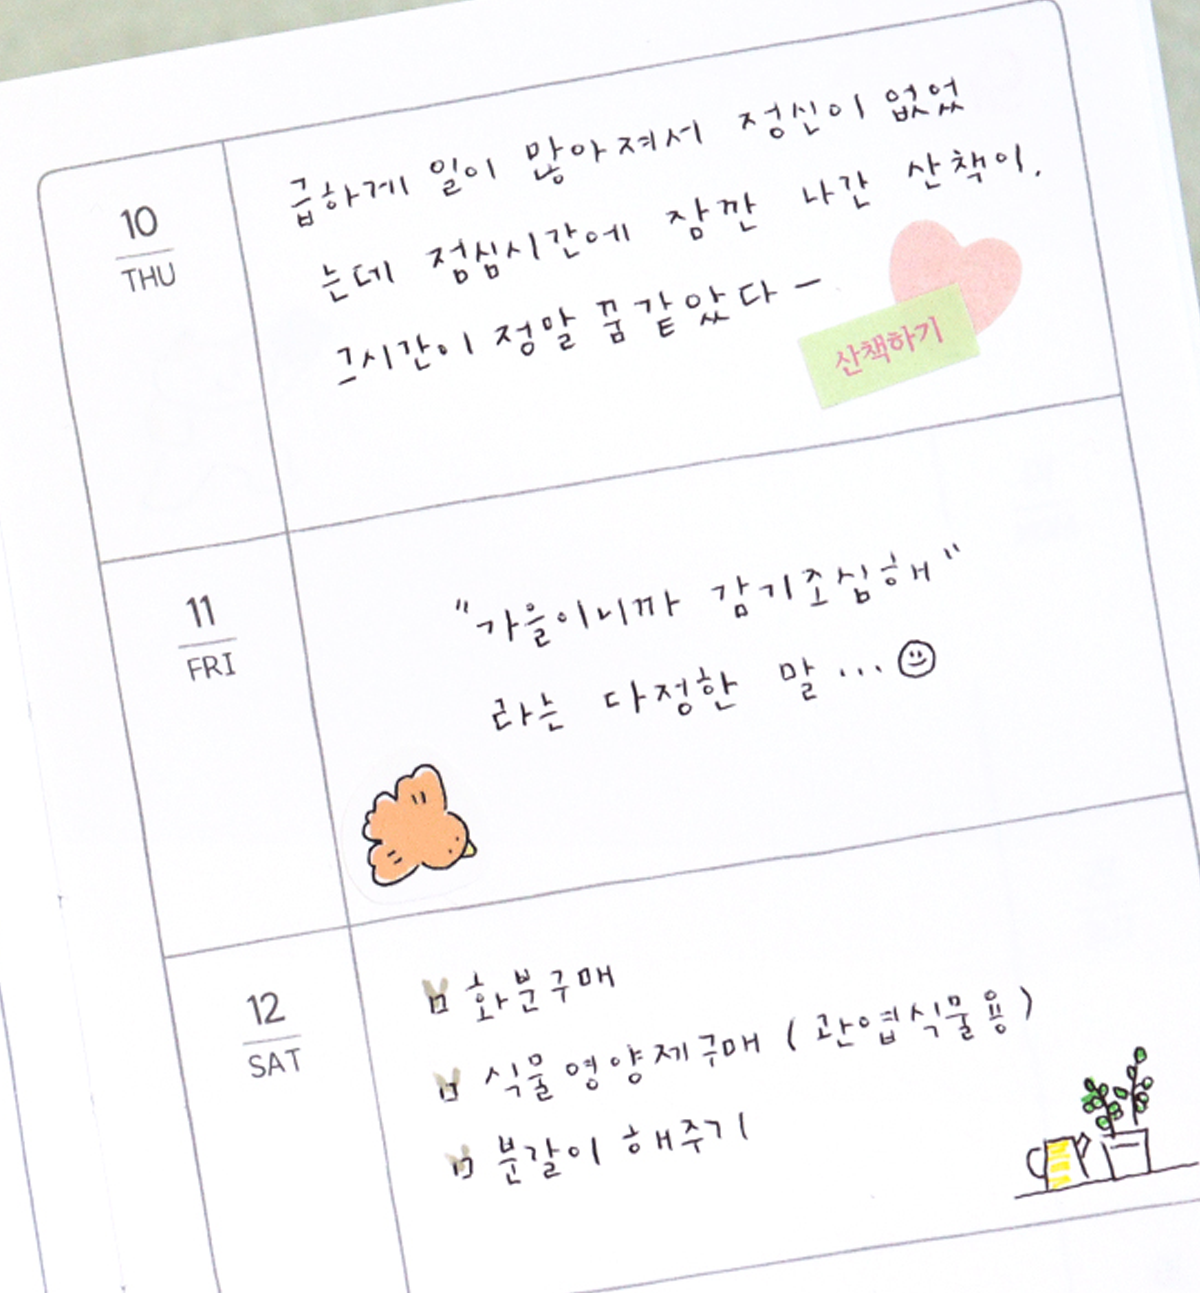 10
THU
급하게 일이 많아져서 정신이 없었
는데 점심시간에 잠깐 나간 산책이.
그시간이 정말 꿈같았다ー
산책하기
11
FRI
"가을이니까 감기조심해"
라는 다정한 말...
12
SAT
화분구매
식물영양제구매 (관엽식물용)
분갈이 해주기